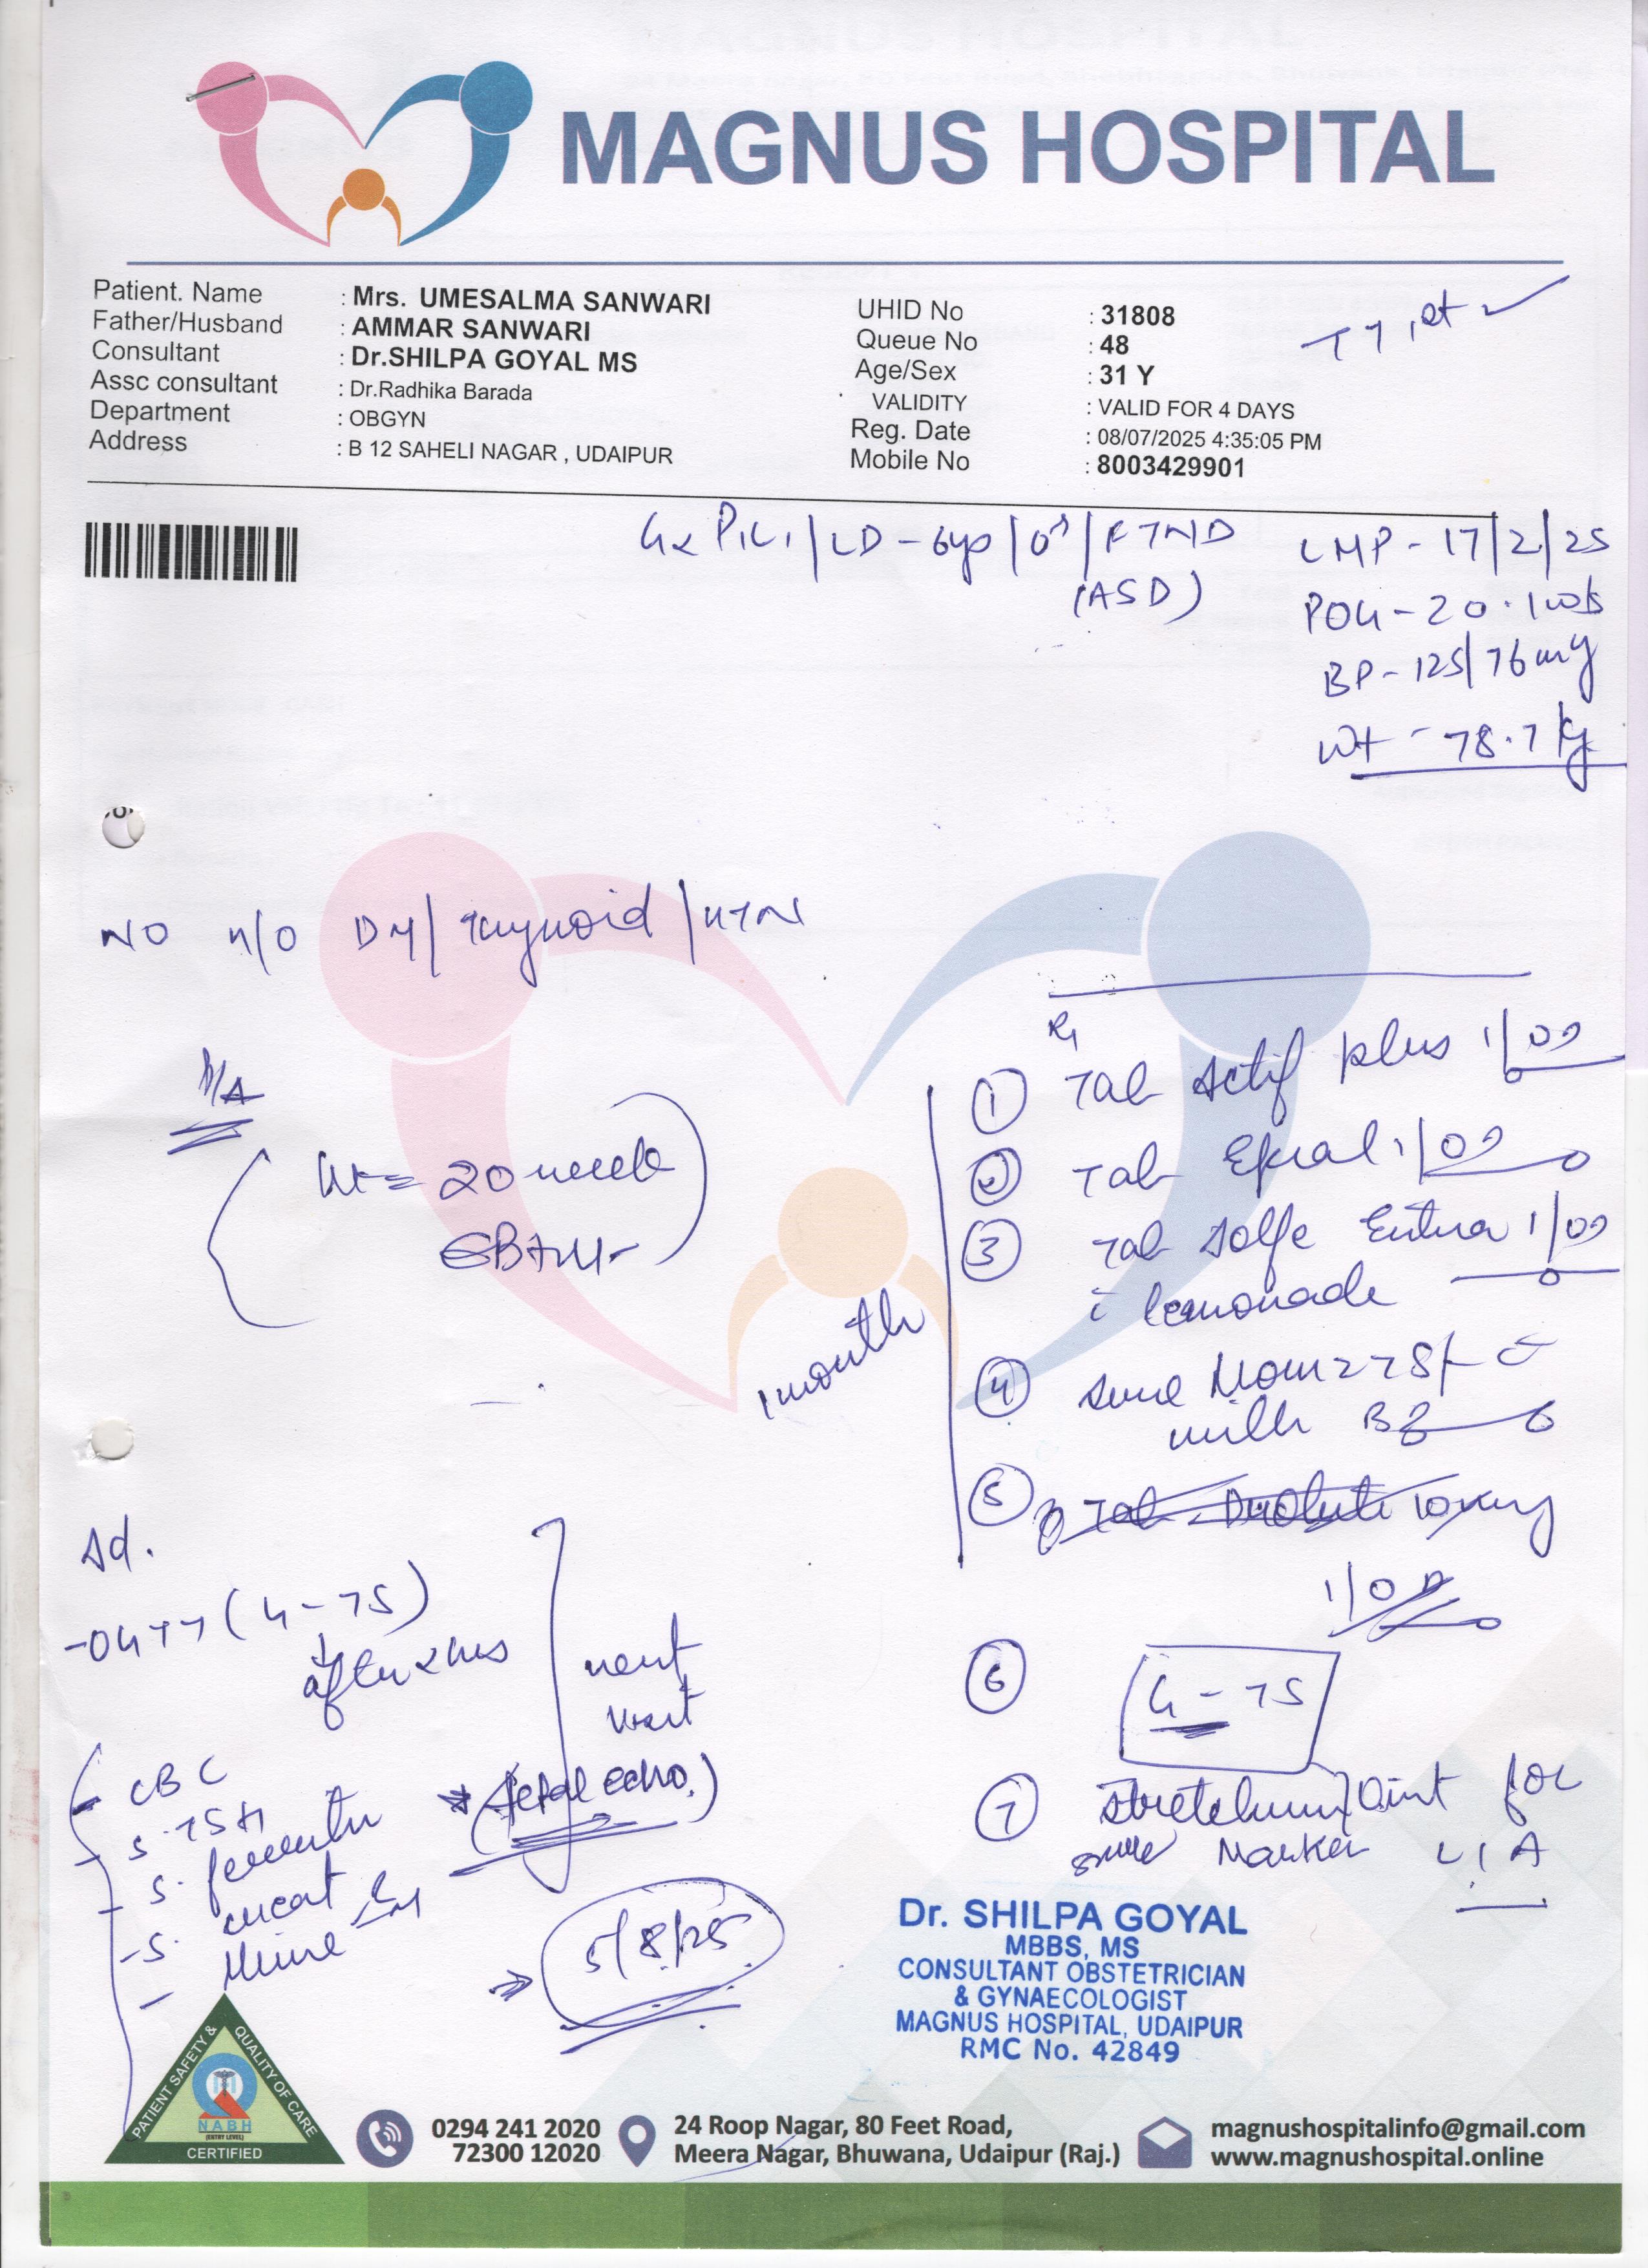 MAGNUS HOSPITAL
Patient. Name : Mrs. UMESALMA SANWARI
Father/Husband : AMMAR SANWARI
Consultant : Dr.SHILPA GOYAL MS
Assc consultant : Dr.Radhika Barada
Department : OBGYN
Address : B 12 SAHELI NAGAR , UDAIPUR
UHID No : 31808
Queue No : 48
Age/Sex : 31 Y
VALIDITY : VALID FOR 4 DAYS
Reg. Date : 08/07/2025 4:35:05 PM
Mobile No : 8003429901
TT 1st
G2P1L1/LD-6yo/♂/FTND
(ASD)
LMP - 17/2/25
POG - 20.1wks
BP - 125/76mmHg
Wt - 78.7 kg
NO H/O DM/Thyroid/HTN
P/A
Ht = 20 week
Rx
① Tab Actif plus 1/OD
② Tab 1/OD
③ Tab 1/OD
c lemonade
④
milk
⑤ Tab 10mg
1/OD
⑥ G-75
⑦ Oint for
Marker L/A
1 month
Ad.
- OGTT (G-75)
after 2hrs
next
visit
- CBC
- S.TSH
- S. ferritin
- S. creat
- Urine
(fetal echo.)
5/8/25
Dr. SHILPA GOYAL
MBBS, MS
CONSULTANT OBSTETRICIAN
& GYNAECOLOGIST
MAGNUS HOSPITAL, UDAIPUR
RMC No. 42849
PATIENT SAFETY & QUALITY OF CARE
NABH
(ENTRY LEVEL)
CERTIFIED
0294 241 2020
72300 12020
24 Roop Nagar, 80 Feet Road,
Meera Nagar, Bhuwana, Udaipur (Raj.)
magnushospitalinfo@gmail.com
www.magnushospital.online